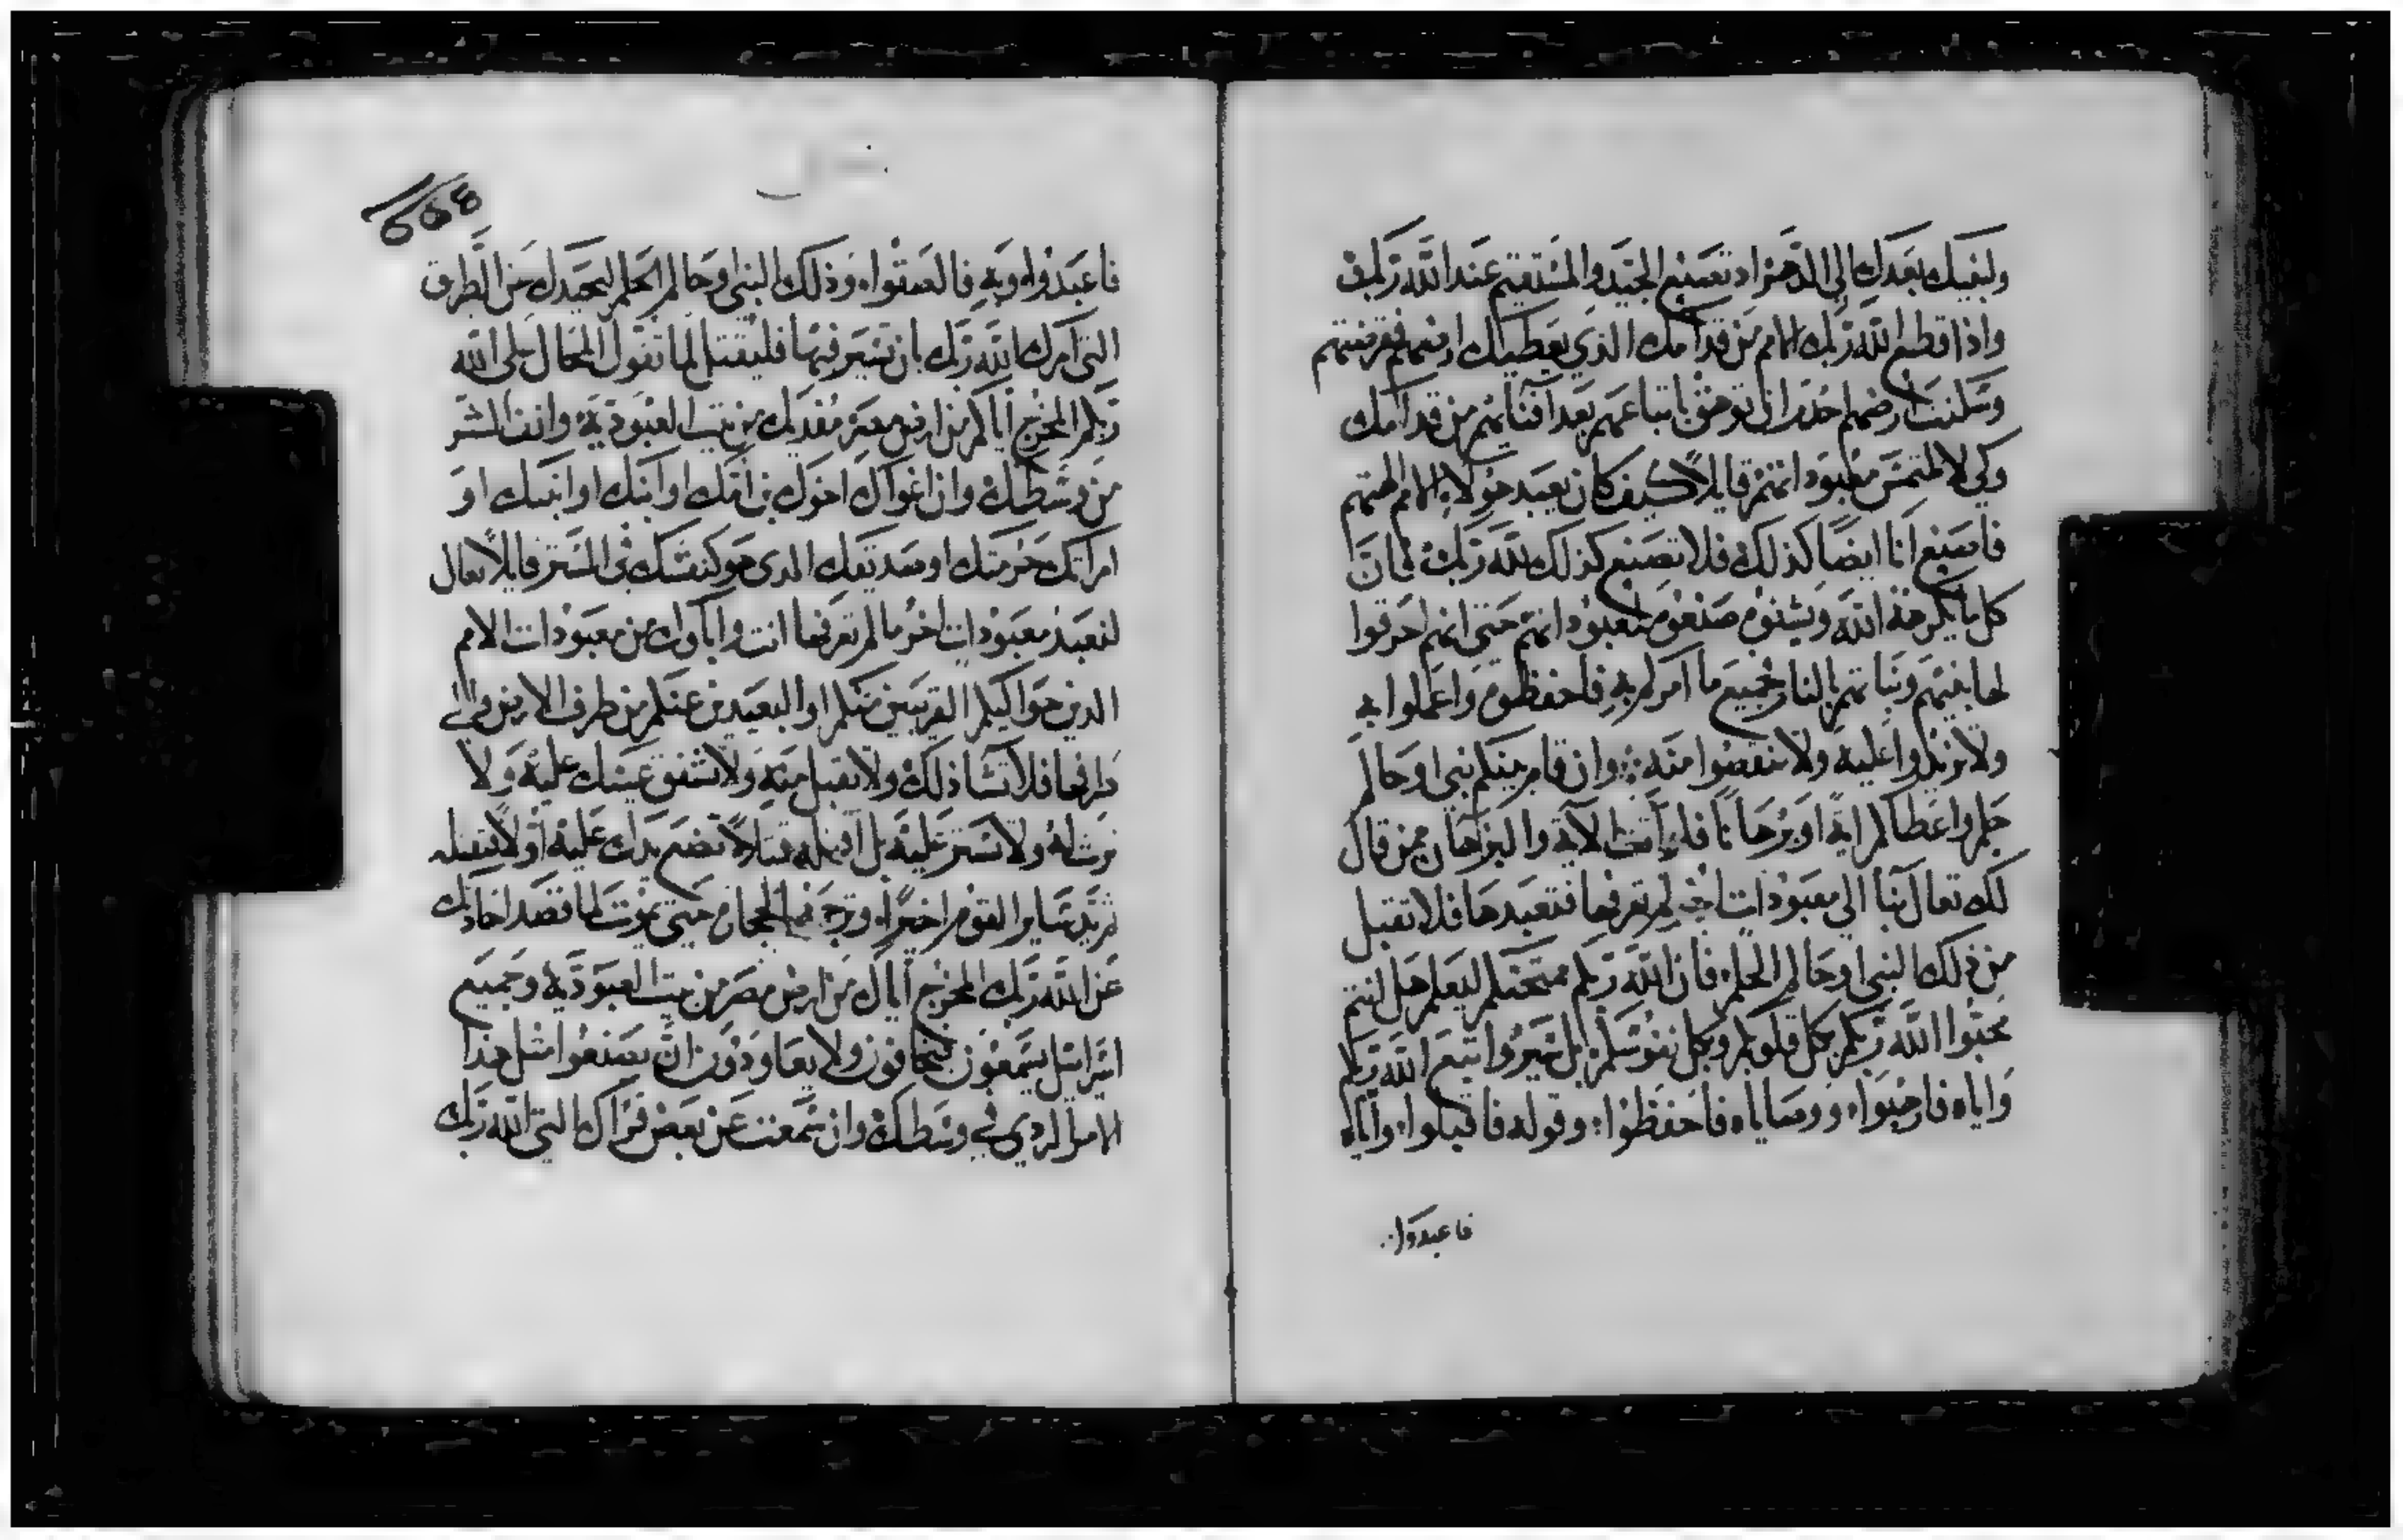 ولبنيك بعدك الى الدهر اد تصنع الجيد والمستقيم عند الله ربك
واذا قطع الله ربك الامم من قدامك الذي يعطيك ارضهم فقرضتهم
وسكنت ارضهم احذر ان توهق باتباعهم بعد افنائهم من قدامك
وكي لا تلتمس معبوداتهم قايلاً كيف كان يعبد هولاء الامم الهتهم
فاصنع انا ايضاً كذلك فلا تصنع كذلك لله ربك فان
كل ما يكرهه الله ويشنوه صنعوه لمعبوداتهم حتى انهم احرقوا
لها بنيهم وبناتهم بالنار فجميع ما امركم به فاحفظوه واعملوا به
ولا تزيدوا عليه ولا تنقصوا منه وان قام بينكم نبي او حالم
حلم واعطاكم اية او برهاناً فلو اتت الاية والبرهان ممن قال
لك تعال بنا الى معبودات اخر لم تعرفها فتعبدها فلا تقبل
من ذلك النبي او حالم الحلم فان الله ربكم ممتحنكم ليعلم هل انتم
تحبوا الله ربكم بكل قلوبكم وبكل نفوسكم بل سيروا تبع الله ربكم
واياه فارهبوا ووصاياه فاحفظوا وقوله فاقبلوا واياه
فاعبدوا
668
فاعبدوا وبه فالصقوا وذلك النبي او حالم الحلم ليحيدك عن الطرق
التي امرك الله ربك بان تسير فيها فليقتل لما تقول المحال على الله
ربكم المخرج اياكم من ارض مصر مفديك من بيت العبودية وانف الشر
من وسطك وان اغواك اخوك بن امك او ابنك او ابنتك او
امراتك حرمتك او صديقك الدى هو كنفسك في الستر قايلاً تعال
لنعبد معبودات اخر ما لم تعرفها انت واباوك من معبودات الامم
الدين حواليكم القريبين منكم او البعيدين عنكم من طرف الارض والى
طرفها فلا تشا ذلك ولا تقبل منه ولا تشفق عينك عليه ولا
ترثا له ولا تستر عليه بل اقتله قتلاً تضع يدك عليه اولاً بقتله
ثم يد ساير القوم اخيراً وترجمه بالحجاره حتى يموت لما قصد احادتك
عن الله ربك المخرج اياك من ارض مصر من بيت العبودية وجميع
اسرائيل يسمعون فيخافون ولا يعاودون ان يصنعوا مثل هذا
الامر الردي في وسطك وان سمعت عن بعض قراك التي الله ربك